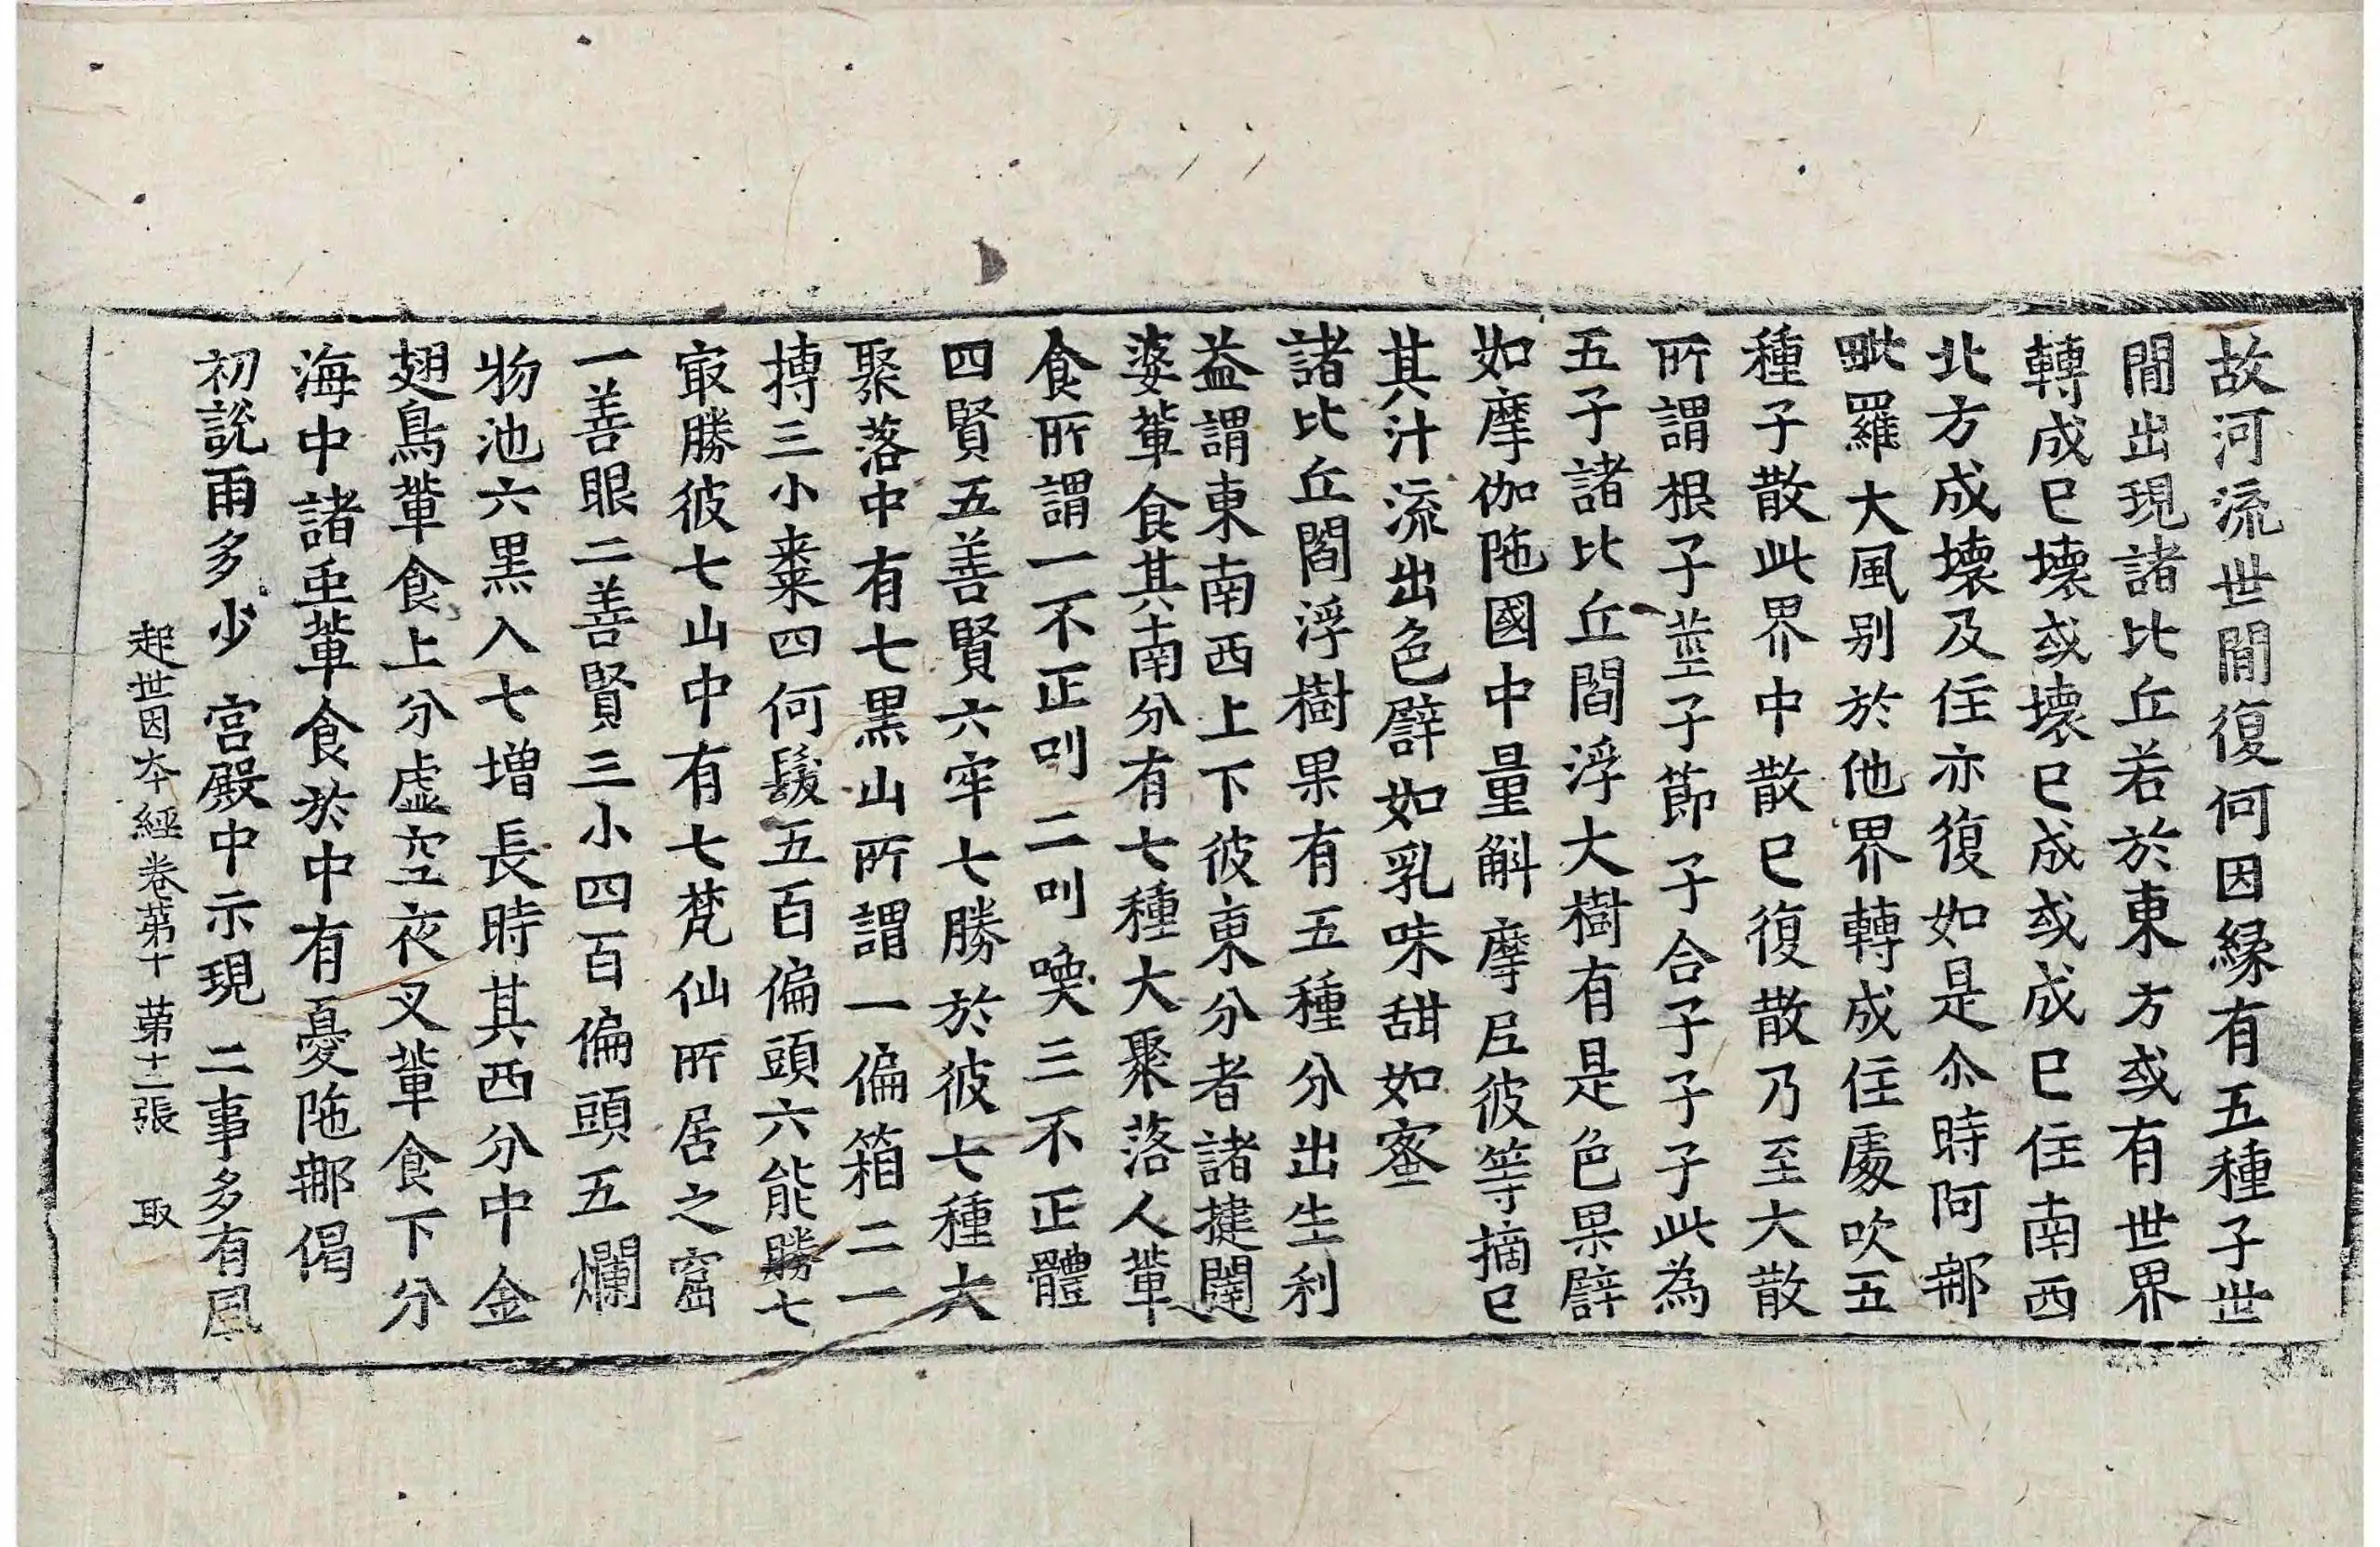 故河流世間復何因縁有五種子世
間出現諸比丘若於東方或有世界
轉成已壞或壞已成或成已住南西
北方成壞及住亦復如是尒時阿郍
毗羅大風别於他界轉成住處吹五
種子散此界中散已復散乃至大散
所謂根子莖子節子合子子子此為
五子諸比丘閻浮大樹有是色果譬
如摩伽陁國中量斛摩尼彼等摘已
其汁流出色譬如乳味甜如蜜
諸比丘閻浮樹果有五種分出生利
益謂東南西上下彼東分者諸揵闥
婆軰食其南分有七種大聚落人軰
食所謂一不正叫二叫喚三不正體
四賢五善賢六牢七勝於彼七種大
聚落中有七黒山所謂一偏箱二一
搏三小棗四何髮五百偏頭六能勝七
㝡勝彼七山中有七梵仙所居之窟
一善眼二善賢三小四百偏頭五爛
物池六黒入七増長時其西分中金
翅鳥軰食上分虚空夜叉軰食下分
海中諸䖝軰食於中有憂陁郍偈
初説雨多少 宮殿中示現 二事多有風
起世因本經卷第十 第十二張 取